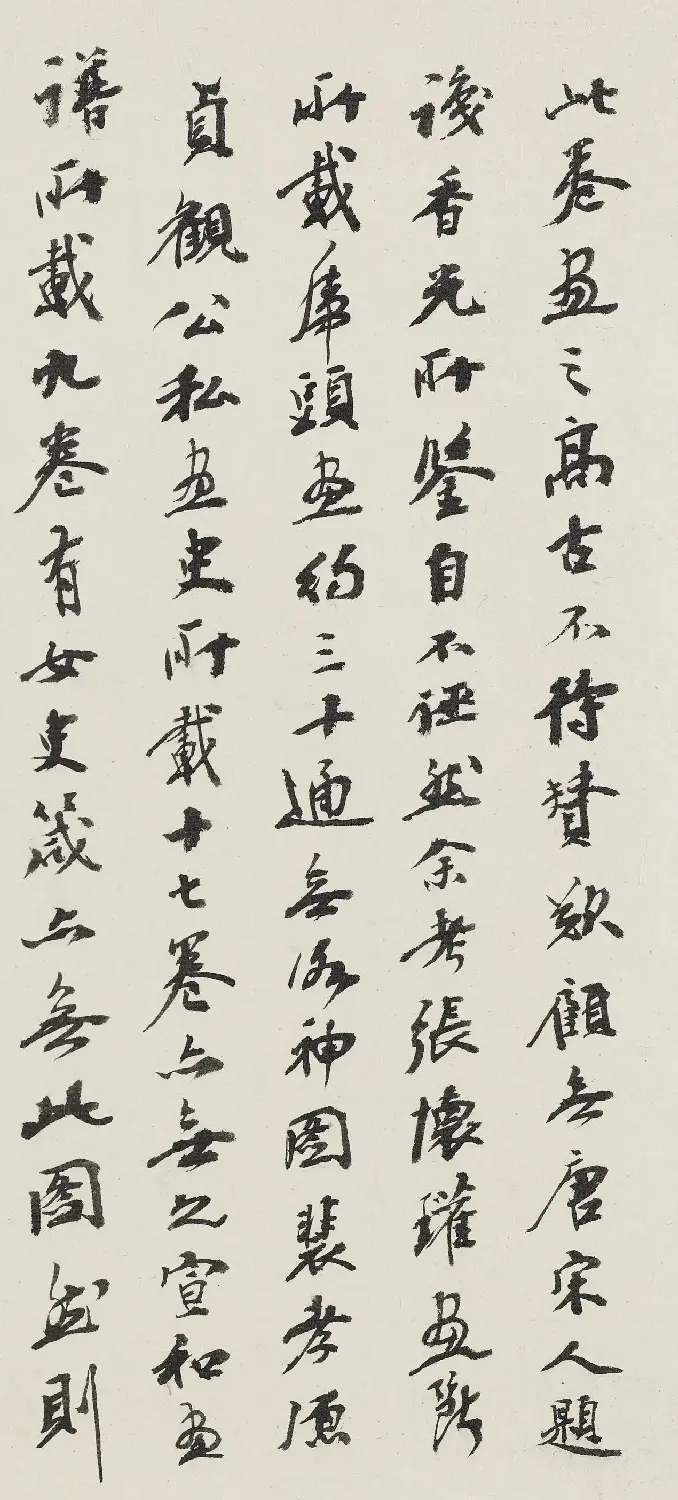 此卷画之高古不待賛歎顧無唐宋人題
識香光所鑒自不誣然余考張懷瓘画斷
所載虎頭画約三十通無洛神图裴孝源
貞觀公私画史所載十七卷亦無之宣和画
譜所載九卷有女史箴亦無此图然則